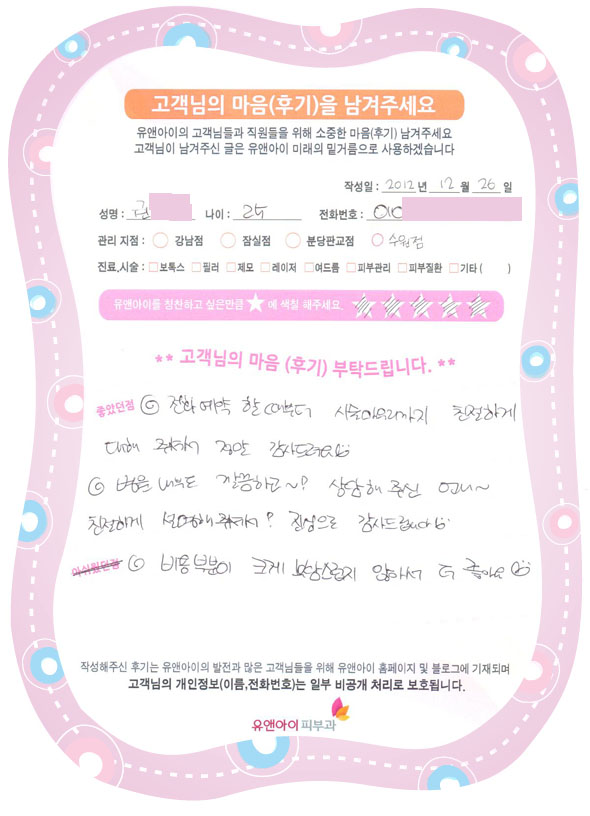 고객님의 마음(후기)을 남겨주세요
유앤아이의 고객님들과 직원들을 위해 소중한 마음(후기) 남겨주세요
고객님이 남겨주신 글은 유앤아이 미래의 밑거름으로 사용하겠습니다
작성일 : 2012 년 12 월 26 일
성명 : 권 나이 : 25 전화번호 : 010
관리 지점 : 강남점 잠실점 분당판교점 수원점
진료,시술 : □보톡스 □필러 □제모 □레이저 □여드름 □피부관리 □피부질환 □기타 ( )
유앤아이를 칭찬하고 싶은만큼 ★에 색칠 해주세요.
** 고객님의 마음 (후기) 부탁드립니다. **
좋았던점 전화예약 할 때부터 시술마무리까지 친절하게
대해 주셔서 정말 감사드려요
병원 내부도 깔끔하고~? 상담해 주신 언니~
친절하게 설명해주셔서? 진심으로 감사드립니다
아쉬웠던점 비용부분이 크게 부담스럽지 않아서 더 좋아요
작성해주신 후기는 유앤아이의 발전과 많은 고객님들을 위해 유앤아이 홈페이지 및 블로그에 기재되며
고객님의 개인정보(이름,전화번호)는 일부 비공개 처리로 보호됩니다.
유앤아이피부과